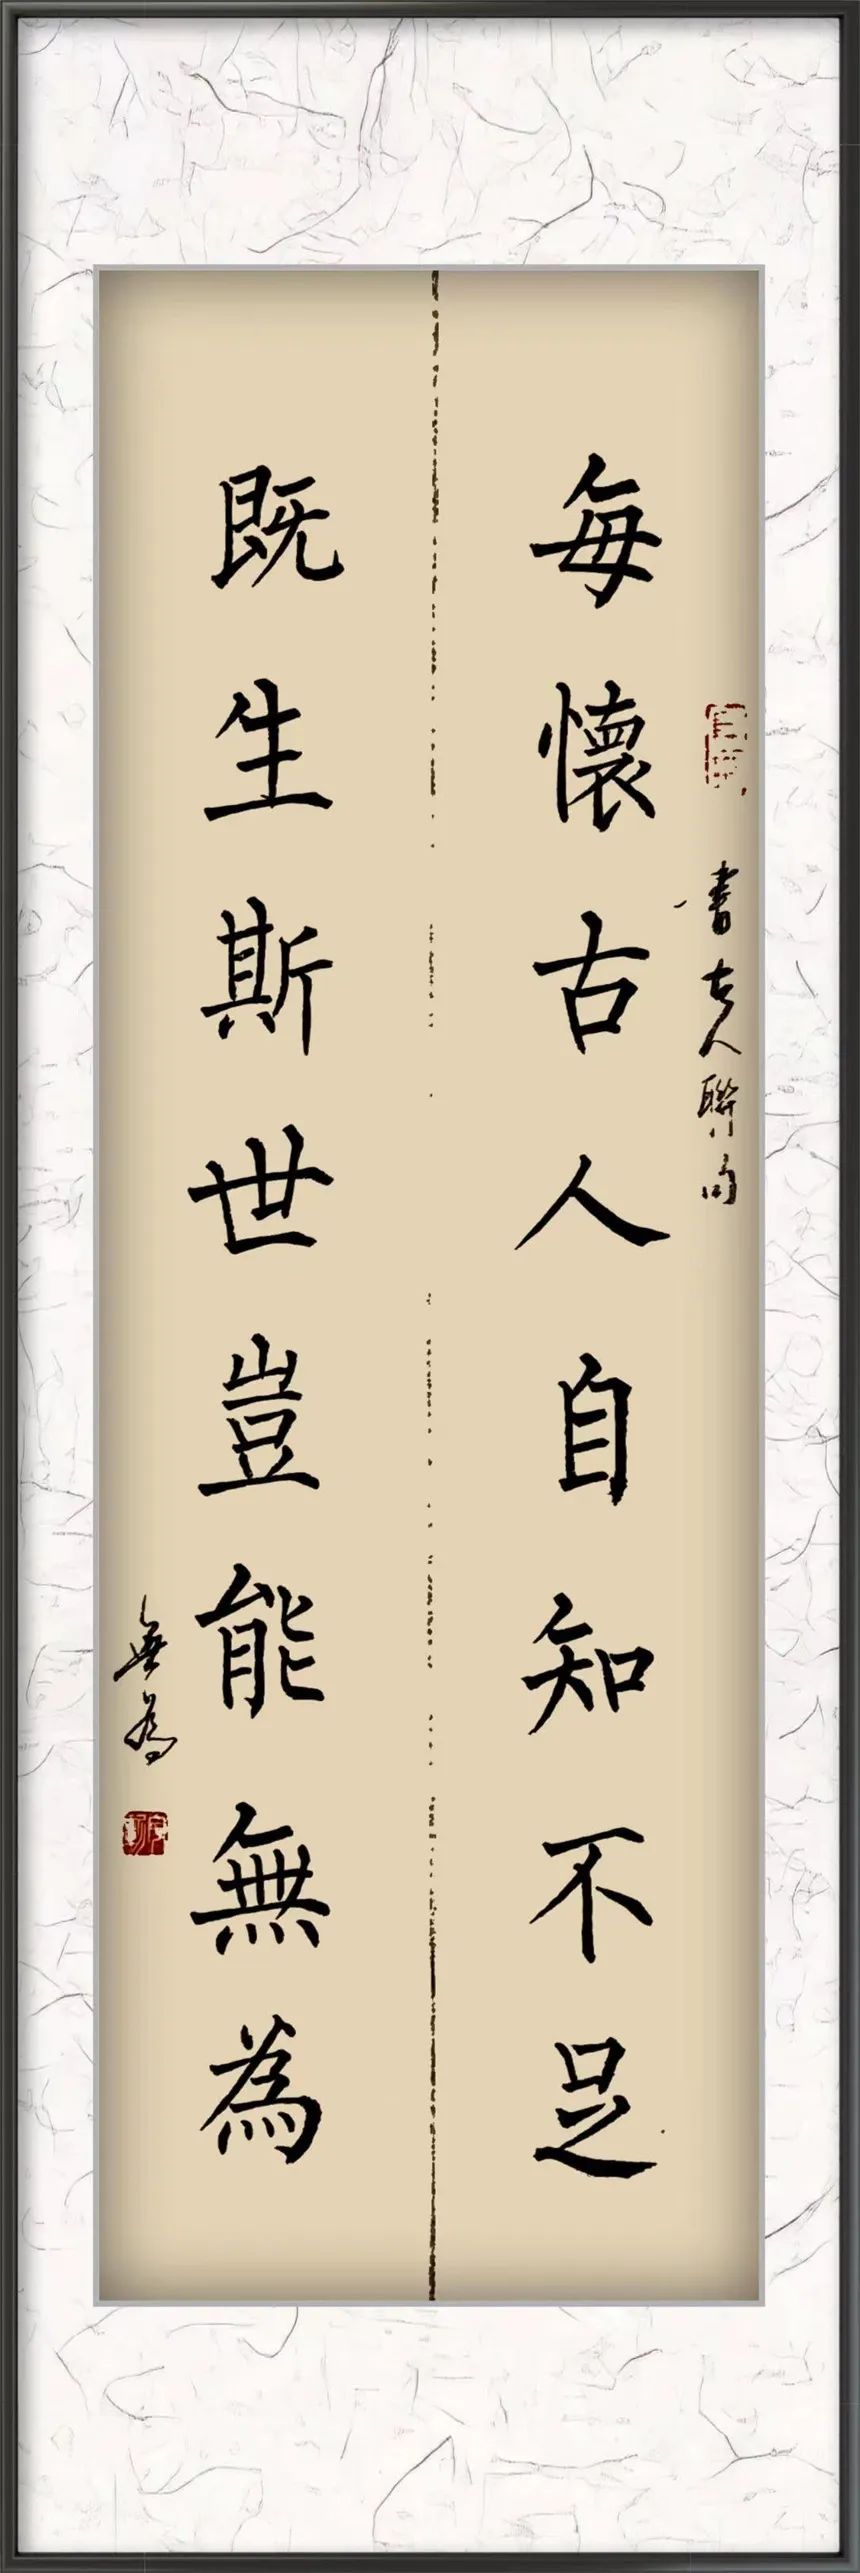 每懷古人自知不足
書古人聯句
既生斯世豈能無為
無為